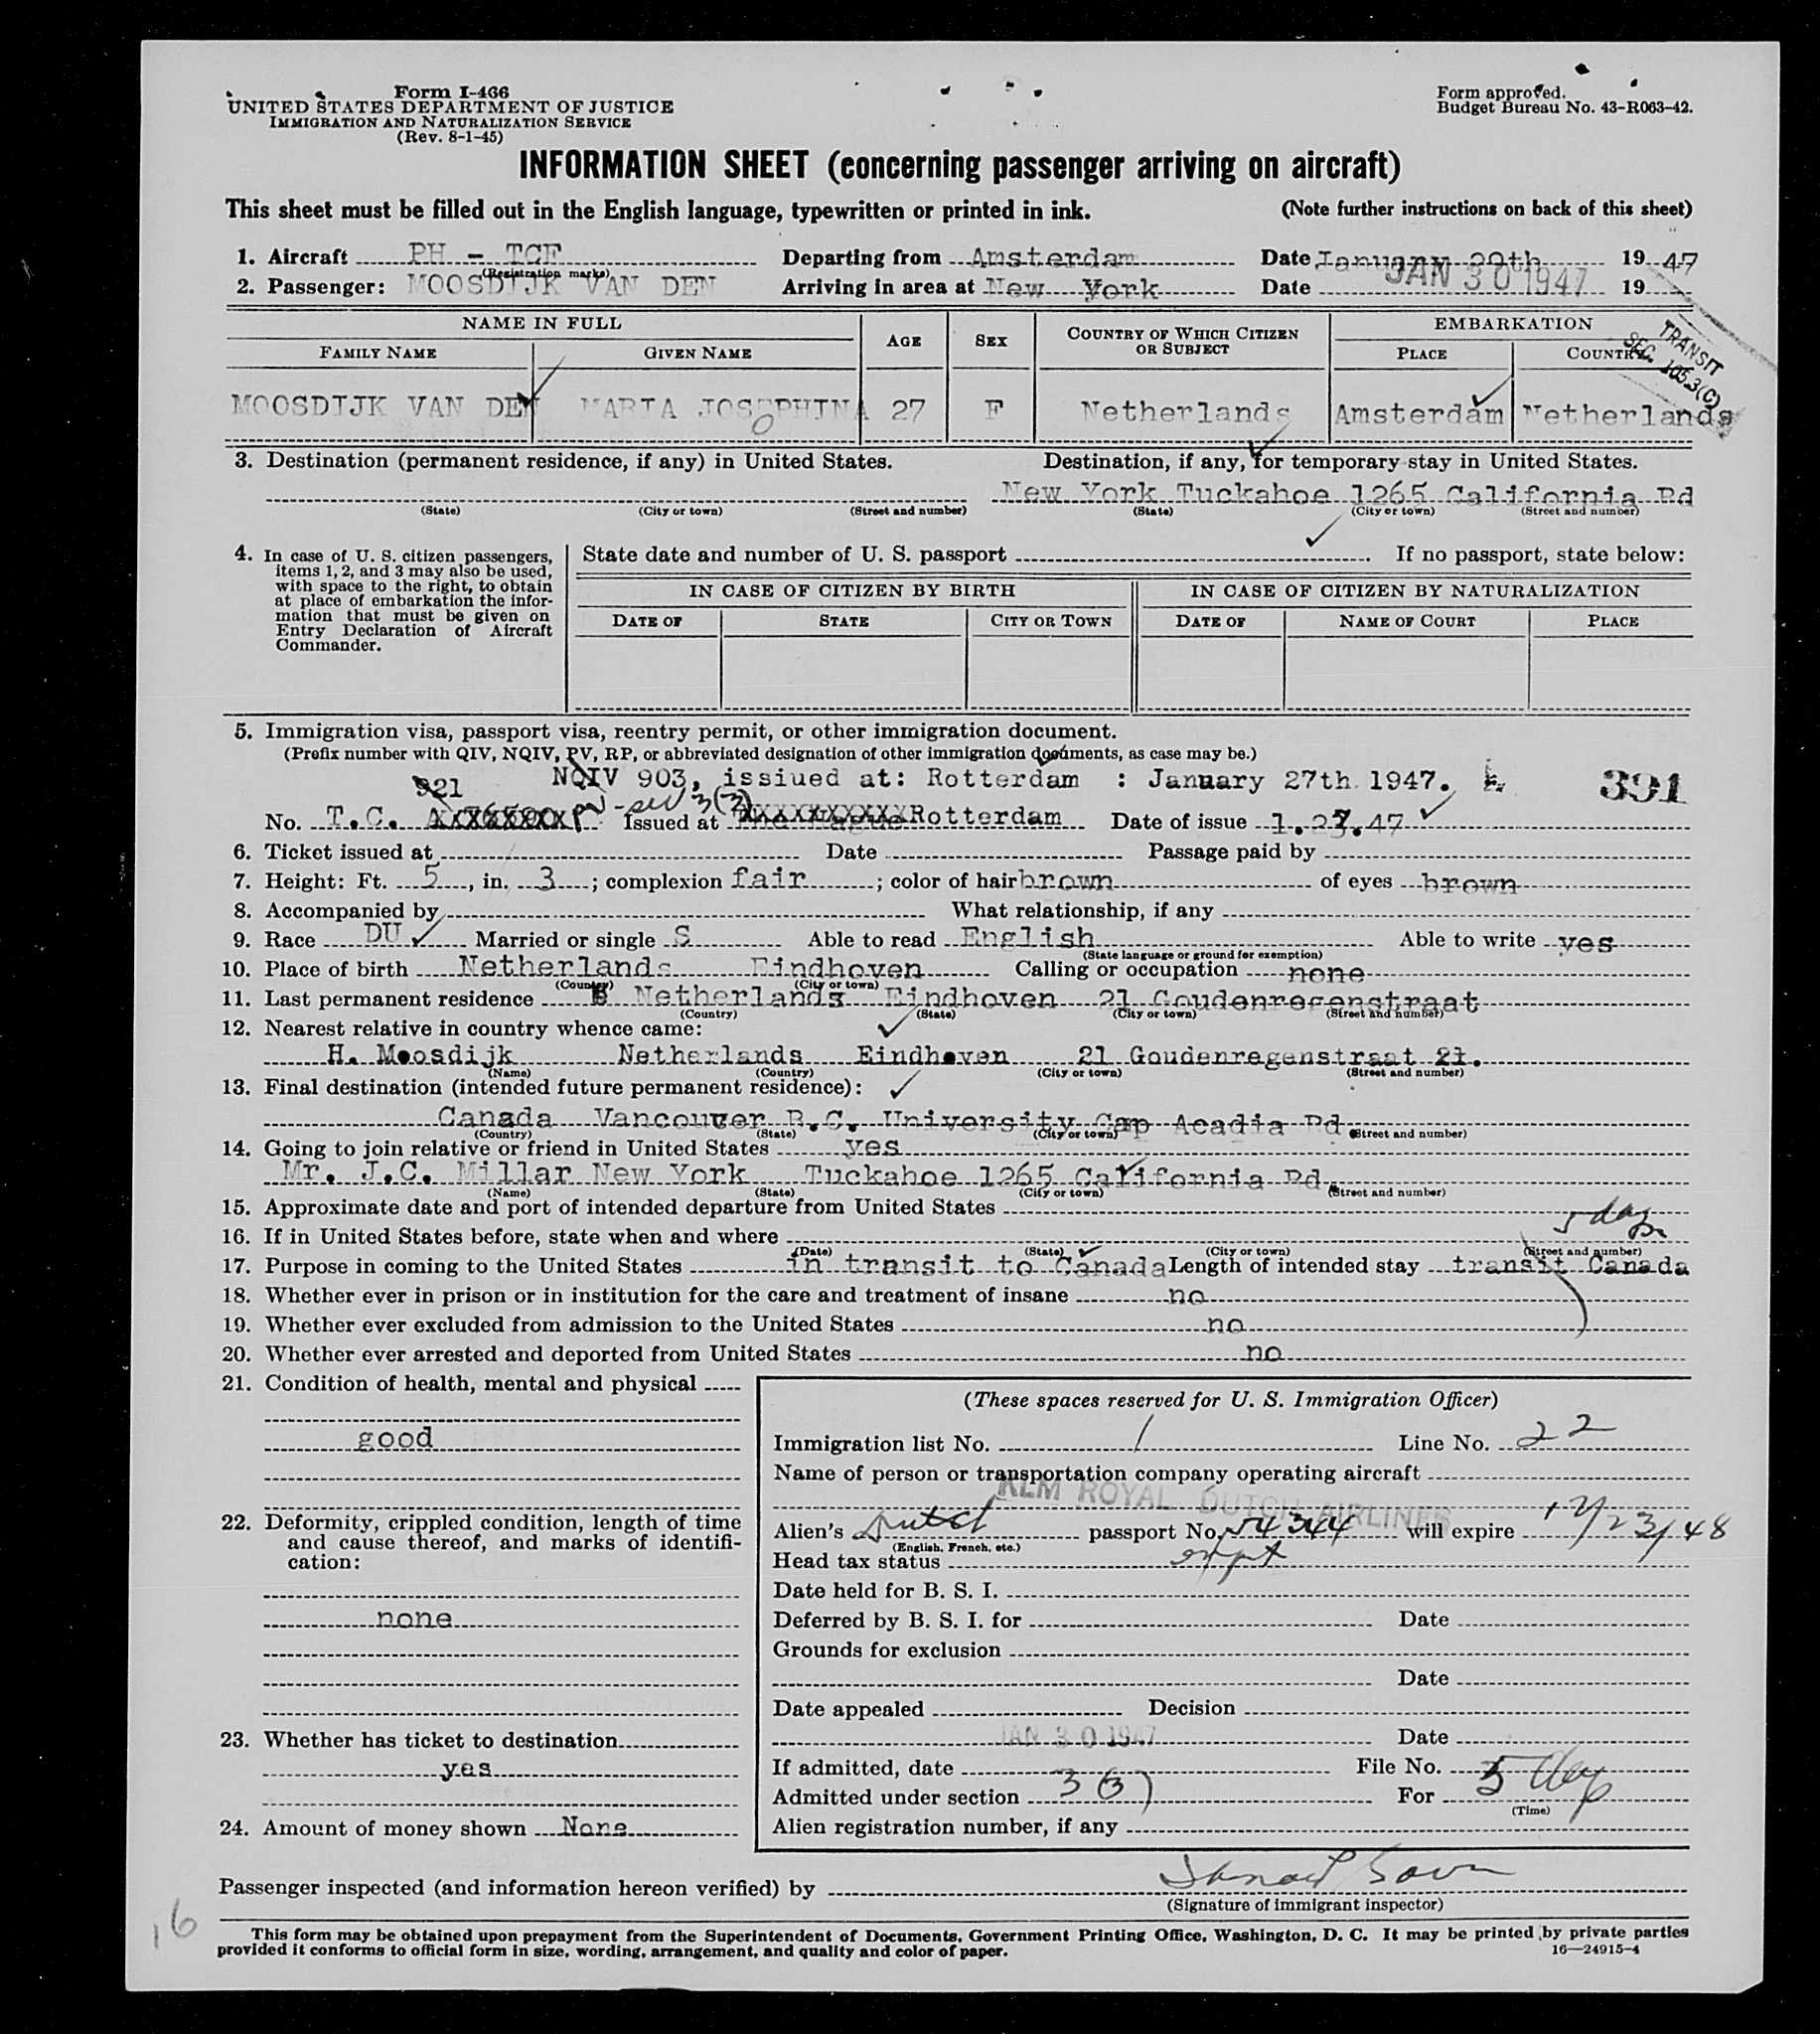 Form I-466
UNITED STATES DEPARTMENT OF JUSTICE
IMMIGRATION AND NATURALIZATION SERVICE
(Rev. 8-1-45)
Form approved.
Budget Bureau No. 43-R063-42.
INFORMATION SHEET (concerning passenger arriving on aircraft)
This sheet must be filled out in the English language, typewritten or printed in ink. (Note further instructions on back of this sheet)
1. Aircraft PH - TCF Departing from Amsterdam Date January 29th 19 47
(Registration marks)
2. Passenger: MOOSDIJK VAN DEN Arriving in area at New York Date JAN 30 1947 19
TRANSIT
SEC. 105.3(C)
NAME IN FULL AGE SEX COUNTRY OF WHICH CITIZEN OR SUBJECT EMBARKATION
FAMILY NAME GIVEN NAME PLACE COUNTRY
MOOSDIJK VAN DEN MARIA JOSOPHINA 27 F Netherlands Amsterdam Netherlands
3. Destination (permanent residence, if any) in United States. Destination, if any, for temporary stay in United States.
New York Tuckahoe 1265 California Rd
(State) (City or town) (Street and number) (State) (City or town) (Street and number)
4. In case of U. S. citizen passengers, items 1, 2, and 3 may also be used, with space to the right, to obtain at place of embarkation the information that must be given on Entry Declaration of Aircraft Commander.
State date and number of U. S. passport If no passport, state below:
IN CASE OF CITIZEN BY BIRTH IN CASE OF CITIZEN BY NATURALIZATION
DATE OF STATE CITY OR TOWN DATE OF NAME OF COURT PLACE
5. Immigration visa, passport visa, reentry permit, or other immigration document.
(Prefix number with QIV, NQIV, PV, RP, or abbreviated designation of other immigration documents, as case may be.)
921 NQIV 903, issiued at: Rotterdam : January 27th 1947. 391
No. T.C. PV - sec 3(3) Issued at Rotterdam Date of issue 1.27.47
6. Ticket issued at Date Passage paid by
7. Height: Ft. 5, in. 3; complexion fair; color of hair brown of eyes brown
8. Accompanied by What relationship, if any
9. Race DU Married or single S Able to read English Able to write yes
(State language or ground for exemption)
10. Place of birth Netherlands Eindhoven Calling or occupation none
(Country) (City or town)
11. Last permanent residence Netherlands Eindhoven 21 Goudenregenstraat
(Country) (State) (City or town) (Street and number)
12. Nearest relative in country whence came:
H. Moosdijk Netherlands Eindhoven 21 Goudenregenstraat 21.
(Name) (Country) (City or town) (Street and number)
13. Final destination (intended future permanent residence):
Canada Vancouver B.C. University Cap Acadia Rd
(Country) (State) (City or town) (Street and number)
14. Going to join relative or friend in United States yes
Mr. J.C. Millar New York Tuckahoe 1265 California Rd.
(Name) (State) (City or town) (Street and number)
15. Approximate date and port of intended departure from United States
5 days
16. If in United States before, state when and where
(Date) (State) (City or town) (Street and number)
17. Purpose in coming to the United States in transit to Canada Length of intended stay transit Canada
18. Whether ever in prison or in institution for the care and treatment of insane no
19. Whether ever excluded from admission to the United States no
20. Whether ever arrested and deported from United States no
21. Condition of health, mental and physical
good
22. Deformity, crippled condition, length of time and cause thereof, and marks of identification:
none
23. Whether has ticket to destination
yes
24. Amount of money shown None
(These spaces reserved for U. S. Immigration Officer)
Immigration list No. 1 Line No. 22
Name of person or transportation company operating aircraft
KLM ROYAL DUTCH AIRLINES
Alien's Dutch passport No. 54344 will expire 12/23/48
(English, French, etc.)
Head tax status exmpt
Date held for B. S. I.
Deferred by B. S. I. for Date
Grounds for exclusion
Date
Date appealed Decision
JAN 30 1947 Date
If admitted, date File No.
Admitted under section 3(3) For 5 days
(Time)
Alien registration number, if any
Passenger inspected (and information hereon verified) by
(Signature of immigrant inspector)
16
This form may be obtained upon prepayment from the Superintendent of Documents, Government Printing Office, Washington, D. C. It may be printed by private parties
provided it conforms to official form in size, wording, arrangement, and quality and color of paper. 16—24915-4